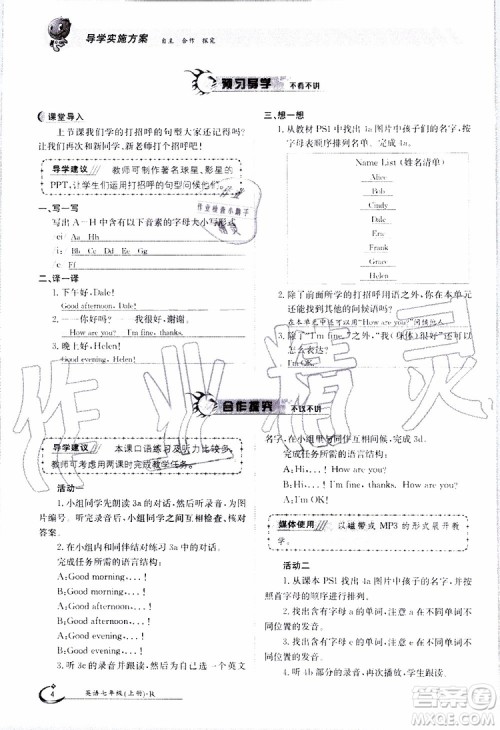 导学实施方案 自主 合作 探究
预习导学 不看不讲
课堂导入
上节课我们学的打招呼的句型大家还记得吗?
让我们再次和新同学、新老师打个招呼吧。
导学建议 教师可制作著名球星、影星的
PPT,让学生们运用打招呼的句型问候他们。
一、写一写
写出 A—H 中含有以下音素的字母大写形式
ei: Aa Hh
i: Bb Cc Dd Ee Gg
e: Ff
二、译一译
1. 下午好,Dale!
Good afternoon, Dale!
2. ——你好吗? ——我很好,谢谢。
How are you? I'm fine, thanks.
3. 晚上好,Helen!
Good evening, Helen!
三、想一想
1. 从教材 PS1 中找出 4a 图片中孩子们的名字,
按顺序列到名单。
Name List (姓名清单)
Alice
Bob
Cindy
Dale
Eric
Frank
Grace
Helen
2. 除了前面所学的打招呼用语之外,你在本单元
还能找到其他的问候语吗?
在本单元中还可以用到 How are you?
3. 除了"I'm fine."外,"我(身体)很好"还可以怎
么表达?
I'm OK.
合作探究 不议不讲
导学建议 本课口语练习及听力比较多,
教师可考虑用两课时完成教学任务。
活动一
1. 小组同学先朗读 3a 的对话,然后听录音,为
图片编号。听完录音小组同学之间互相检查,核对
答案。
2. 在组内和同伴结对练习 3a 中的对话。
完成任务所需的语言结构:
A:Good morning,...!
B:Good morning,...!
A:Good afternoon,...!
B:Good afternoon,...!
A:Good evening,...!
B:Good evening,...!
3. 听 3c 的录音,给自己选一个英文
名字,在小组内问候同学。
完成任务所需的语言结构:
A:Hi,...! How are you?
B:I'm fine, thanks. How are you?
A:I'm OK!
媒体使用 以磁带或 MP3 的形式展开教
学。
活动二
1. 从课本 PS1 找出 4a 图片中孩子的名字,并
按照首字母的顺序进行排列。
2. 找出含有字母 a 的单词,注意 a 在不同单词
不同位置的发音。
3. 找出含有字母 e 的单词,注意 e 在不同单词
不同位置的发音。
4. 听 1b 部分的录音,注意含有字母 a、e 的单词
的发音。
4 英语七年级(上册)·R
作业检查小助手
作业精灵